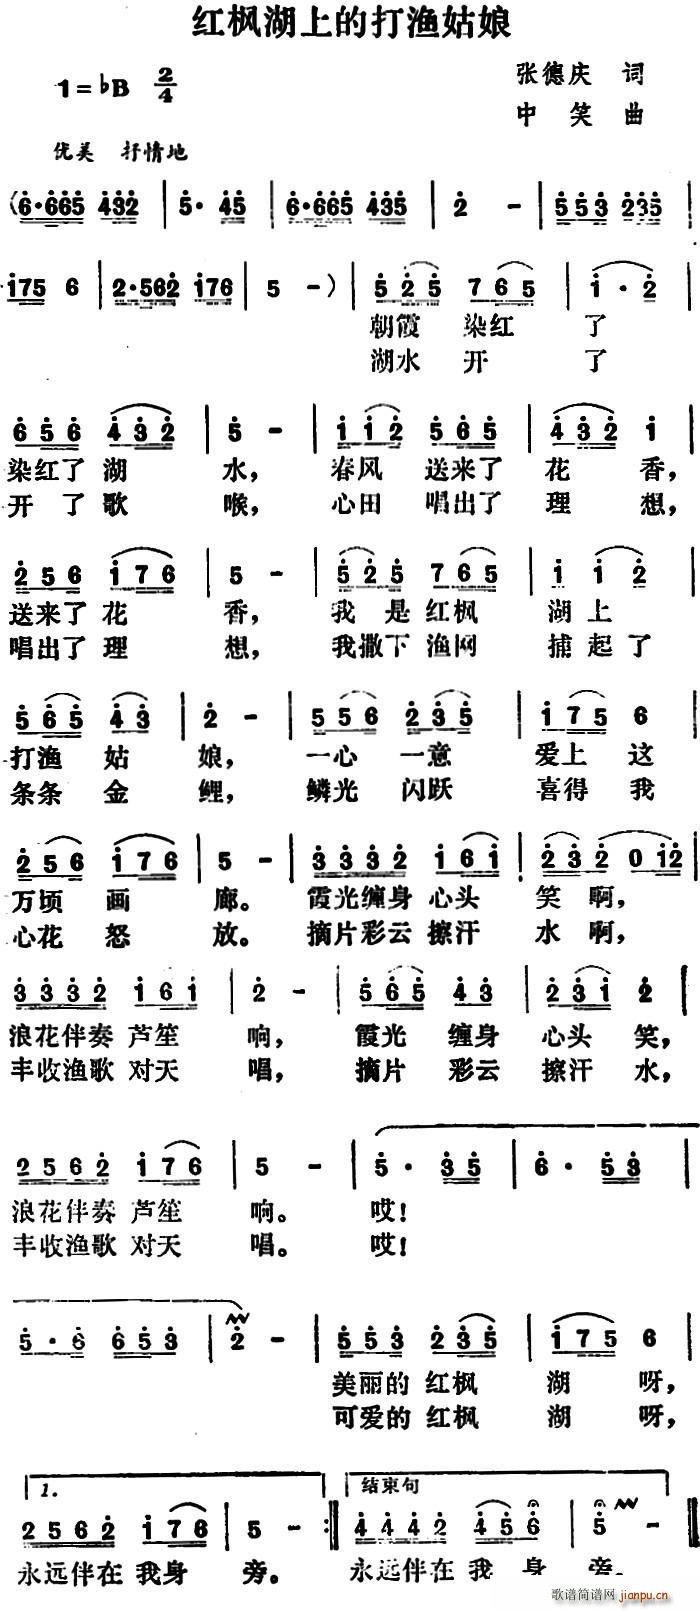 红枫湖上的打渔姑娘
1=♭B 2/4
张德庆 词
中笑 曲
优美 抒情地
(6·665 432 | 5· 45 | 6·665 435 | 2 - | 553 235 |
175 6 | 2·562 176 | 5 -) | 525 765 | 1·2 |
朝霞 染红 了
湖水 开 了
656 432 | 5 - | 112 565 | 432 1 |
染红了 湖 水， 春风 送来了 花 香，
开 了 歌 喉， 心田 唱出了 理 想，
256 176 | 5 - | 525 765 | 1 12 |
送来了 花 香， 我 是 红枫 湖上
唱出了 理 想， 我撒下 渔网 捕起了
565 43 | 2 - | 556 235 | 175 6 |
打渔 姑 娘， 一心 一意 爱上 这
条条 金 鲤， 鳞光 闪跃 喜得 我
256 176 | 5 - | 3332 161 | 232 012 |
万顷 画 廊。 霞光缠身 心头 笑 啊，
心花 怒 放。 摘片彩云 擦汗 水 啊，
3332 161 | 2 - | 565 43 | 231 2 |
浪花伴奏 芦笙 响， 霞光 缠身 心头 笑，
丰收渔歌 对天 唱， 摘片 彩云 擦汗 水，
2562 176 | 5 - | 5· 35 | 6· 53 |
浪花伴奏 芦笙 响。 哎！
丰收渔歌 对天 唱。 哎！
5·6 653 | 2 - | 553 235 | 175 6 |
美丽的 红枫 湖 呀，
可爱的 红枫 湖 呀，
1. 结束句
2562 176 | 5 - :‖ 4442 456 | 5 - ‖
永远伴在 我身 旁。 永远伴在 我 身 旁。
歌谱简谱网 jianpu.cn